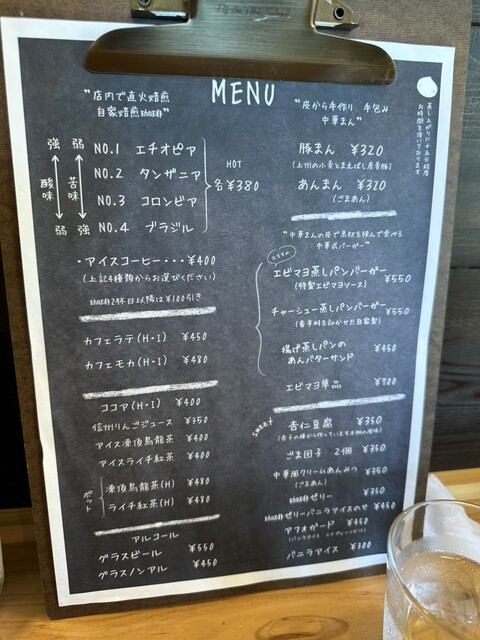 MENU
"店内で直火焙煎
自家焙煎珈琲"
強 弱
酸味 苦味
弱 強
NO.1 エチオピア
NO.2 タンザニア
NO.3 コロンビア
NO.4 ブラジル
HOT
各¥380
・アイスコーヒー・・・¥400
(上記4種類からお選びください)
珈琲2杯目以降は¥100引き
カフェラテ(H・I) ¥450
カフェモカ(H・I) ¥480
ココア(H・I) ¥400
信州りんごジュース ¥350
アイス凍頂烏龍茶 ¥400
アイスライチ紅茶 ¥400
ポット
凍頂烏龍茶(H) ¥480
ライチ紅茶(H) ¥480
アルコール
グラスビール ¥550
グラスノンアル ¥450
"皮から手作り 手包み
中華まん"
蒸し上がりに十五分程度
お時間を頂いております
豚まん ¥320
(上州の小麦とまえばし産香豚)
あんまん ¥320
(ごまあん)
"中華まんの皮で具材を挟んで食べる
中華式バーガー"
おすすめ
エビマヨ蒸しパンバーガー ¥550
(特製エビマヨソース)
チャーシュー蒸しパンバーガー ¥550
(香辛料を効かせた自家製)
揚げ蒸しパンの
あんバターサンド ¥450
エビマヨ単品 ¥700
SWEET
杏仁豆腐 ¥350
ごま団子 2個 ¥350
中華風クリームあんみつ ¥350
(ごまあん)
珈琲ゼリー ¥350
珈琲ゼリーバニラアイスのせ ¥450
アフォガード ¥450
バニラアイス ¥300